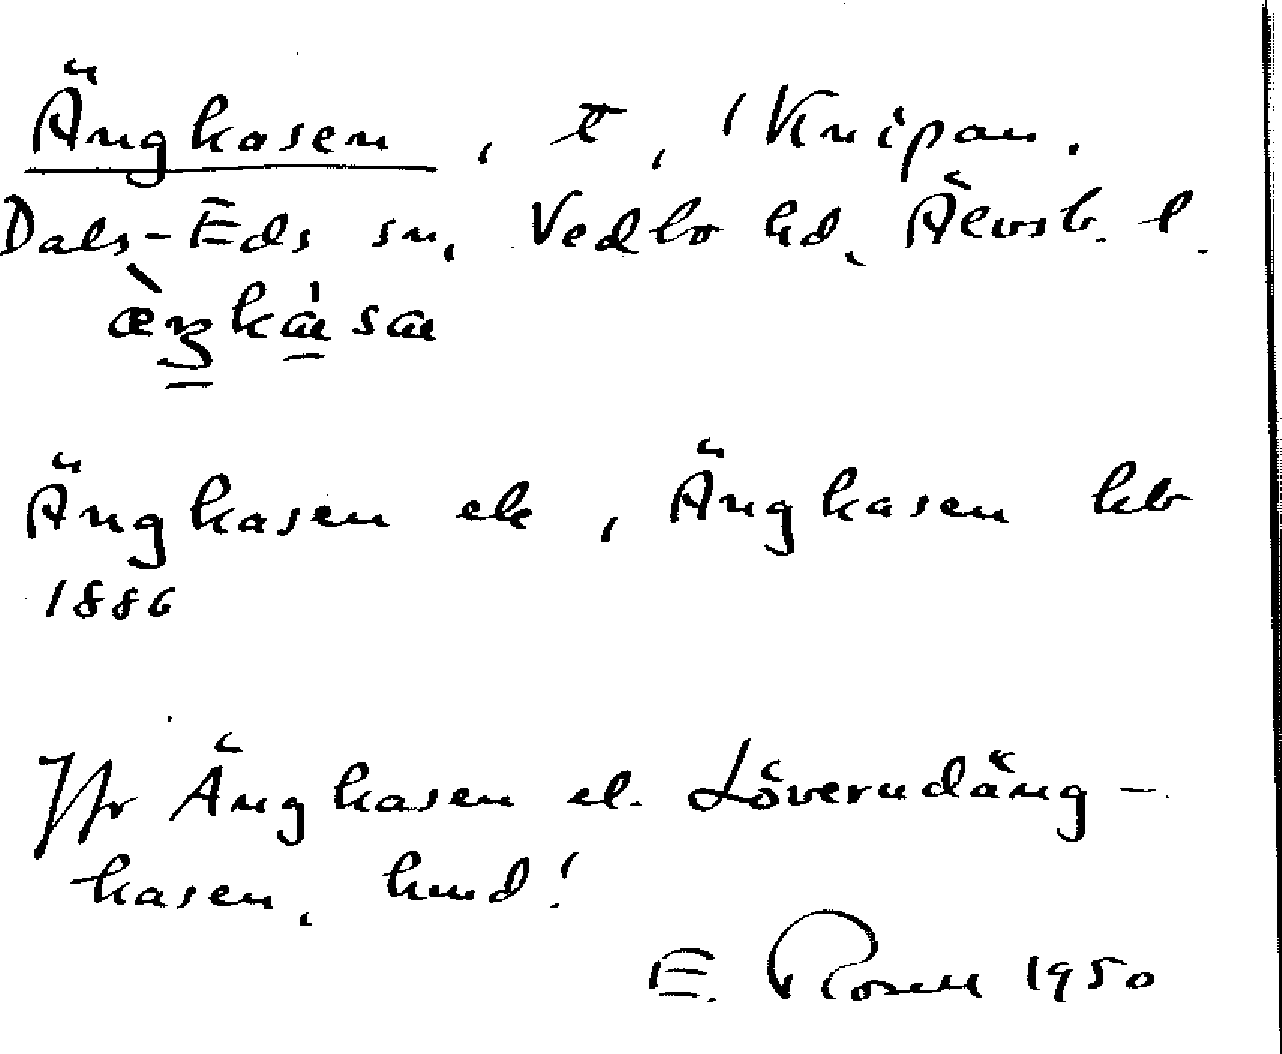 Ängkasen, t, / Knipan.
Dals-Eds sn, Vedbo hd, Älvsb. l.
Ängkasen ek, Ängkasen kb
1886
Jfr Ängkasen el. Löverudäng-
kasen, hmd!
E. Rosell 1950